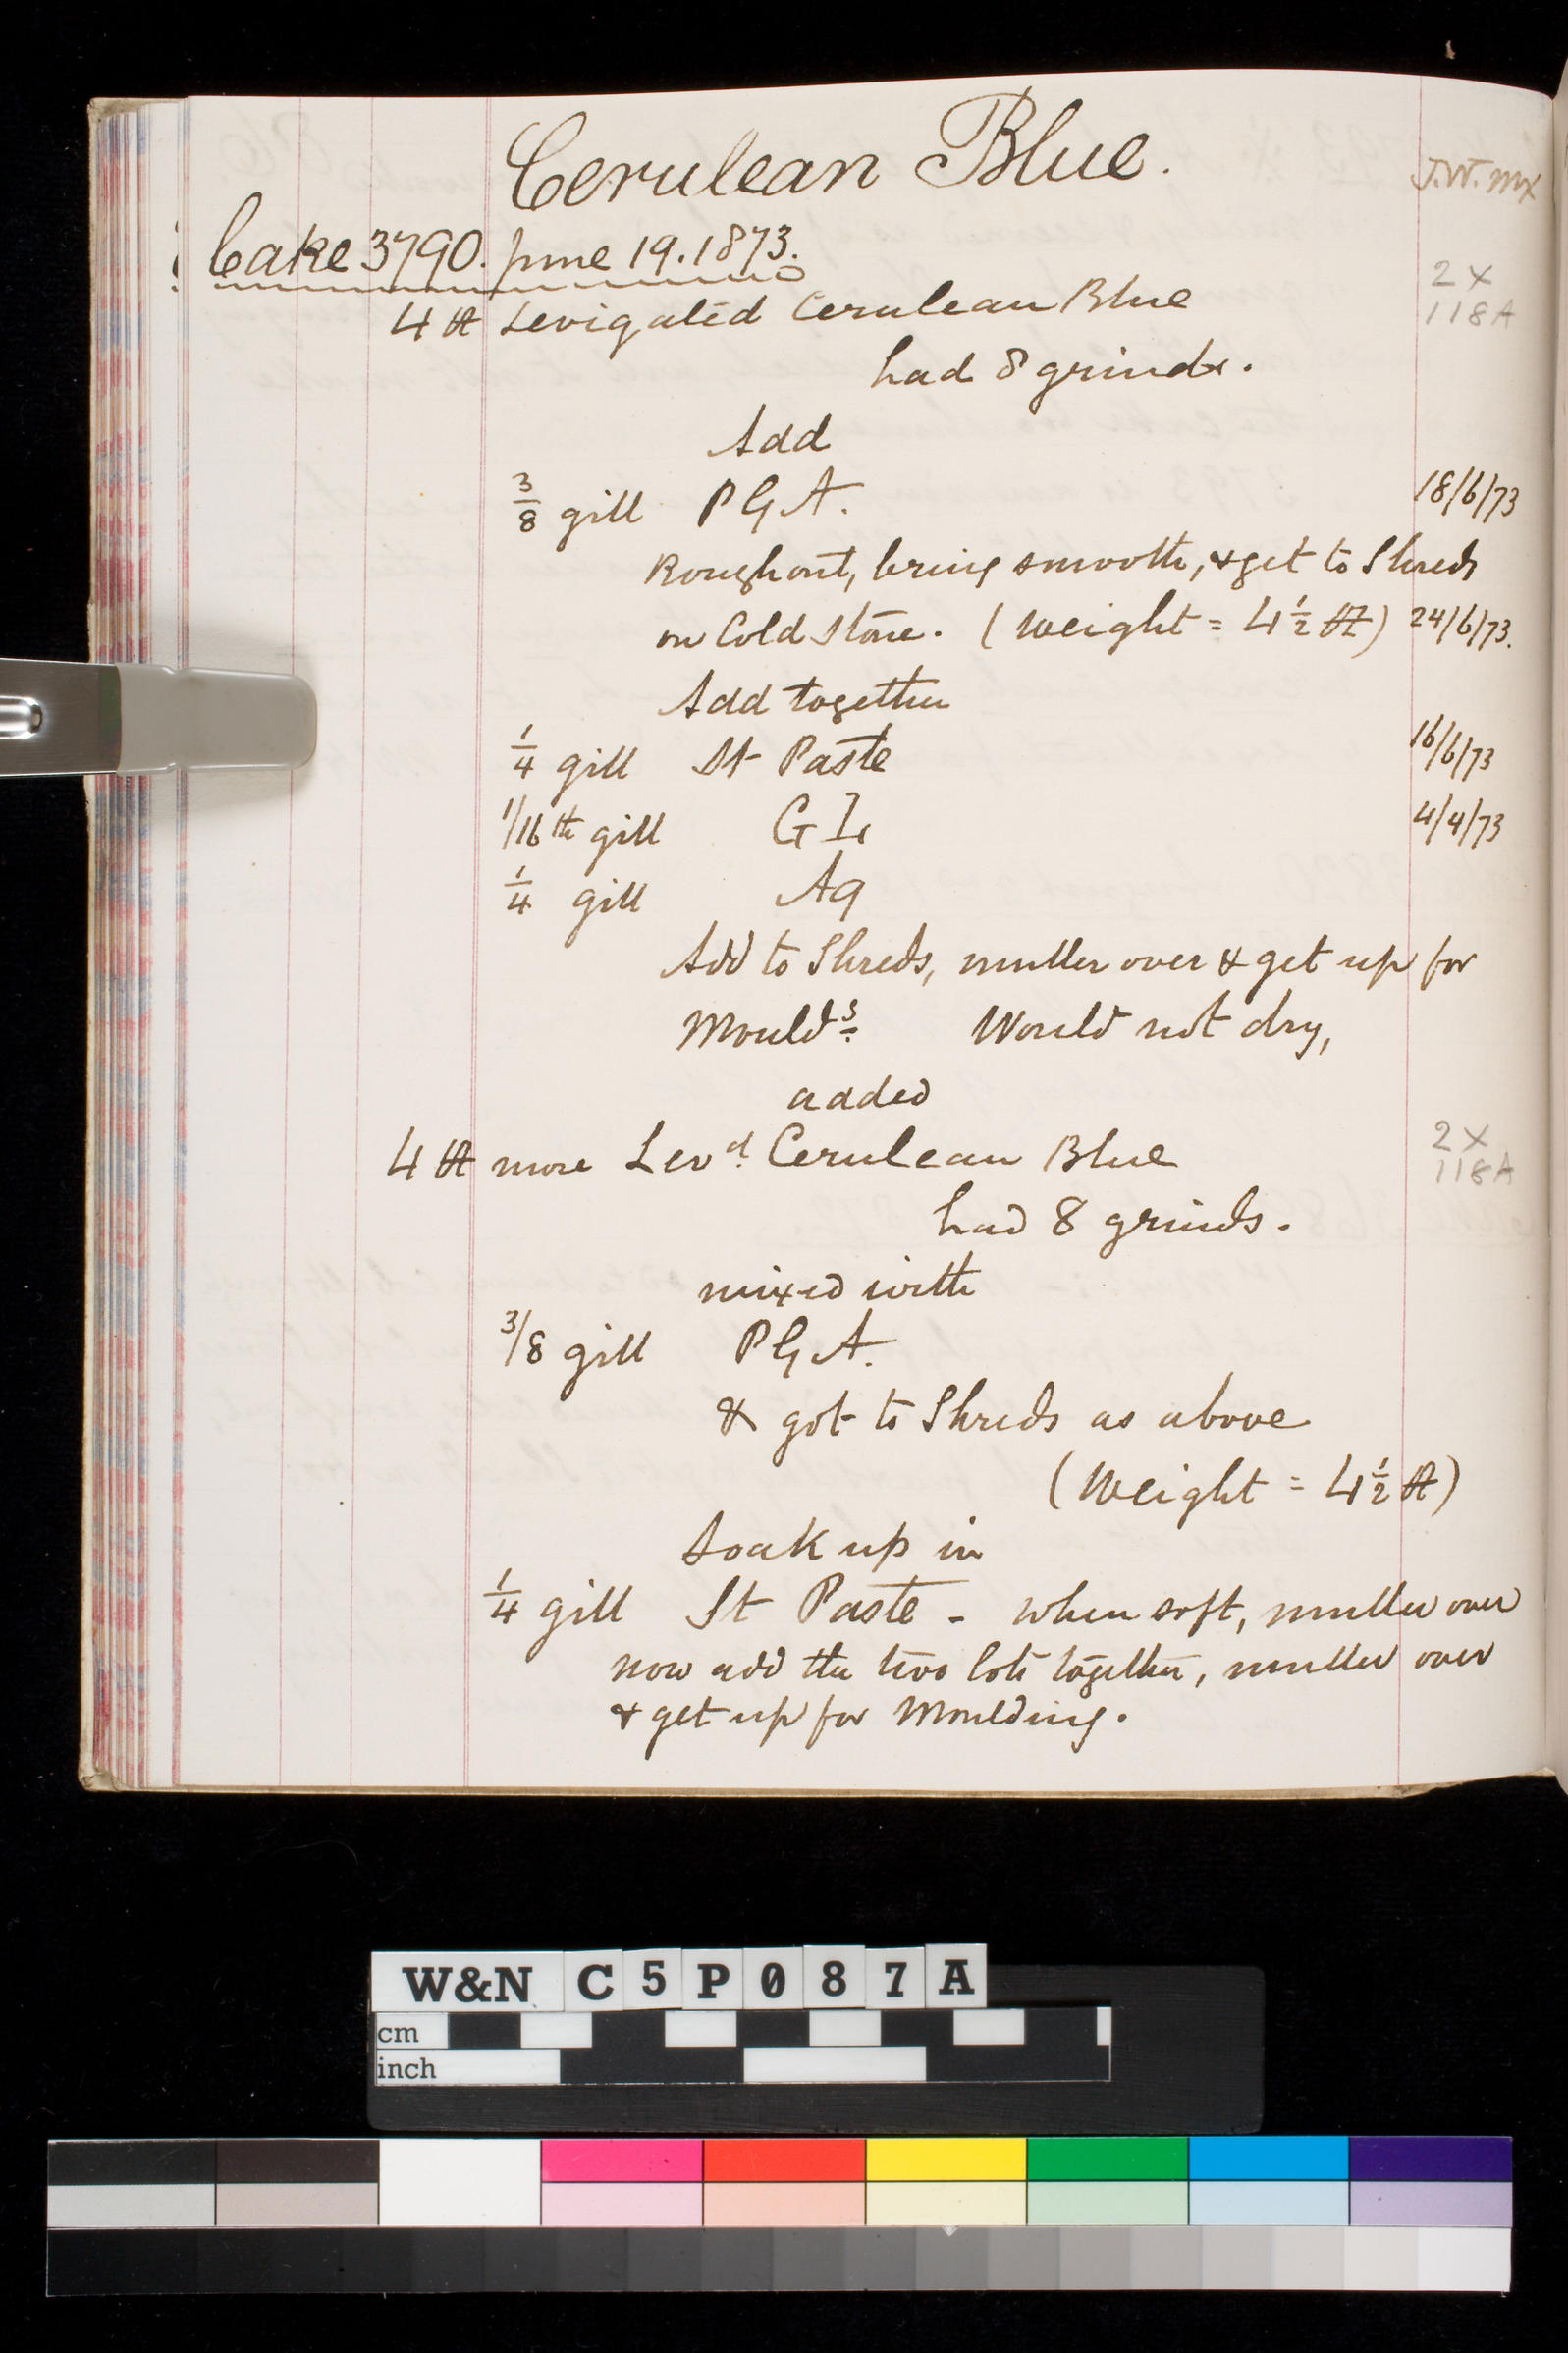 Cerulean Blue.
J.W. mx
Cake 3790. June 19. 1873.
2 X
4 ℔ Levigated Cerulean Blue 118A
had 8 grinds.
Add
3/8 gill P G A. 18/6/73
Rough out, bring smooth, & get to Shreds
on Cold Stone. (Weight = 4 1/2 ℔) 24/6/73.
Add together
1/4 gill St Paste 16/6/73
1/16th gill G L 4/4/73
1/4 gill Aq
Add to Shreds, muller over & get up for
Moulds Would not dry,
added
2 X
4 ℔ more Levd. Cerulean Blue 118A
had 8 grinds.
mixed with
3/8 gill P G A.
& got to Shreds as above
(Weight = 4 1/2 ℔)
Soak up in
1/4 gill St Paste - when soft, muller over
now add the two lots together, muller over
& get up for Moulding.
W&N C5P087A
cm
inch